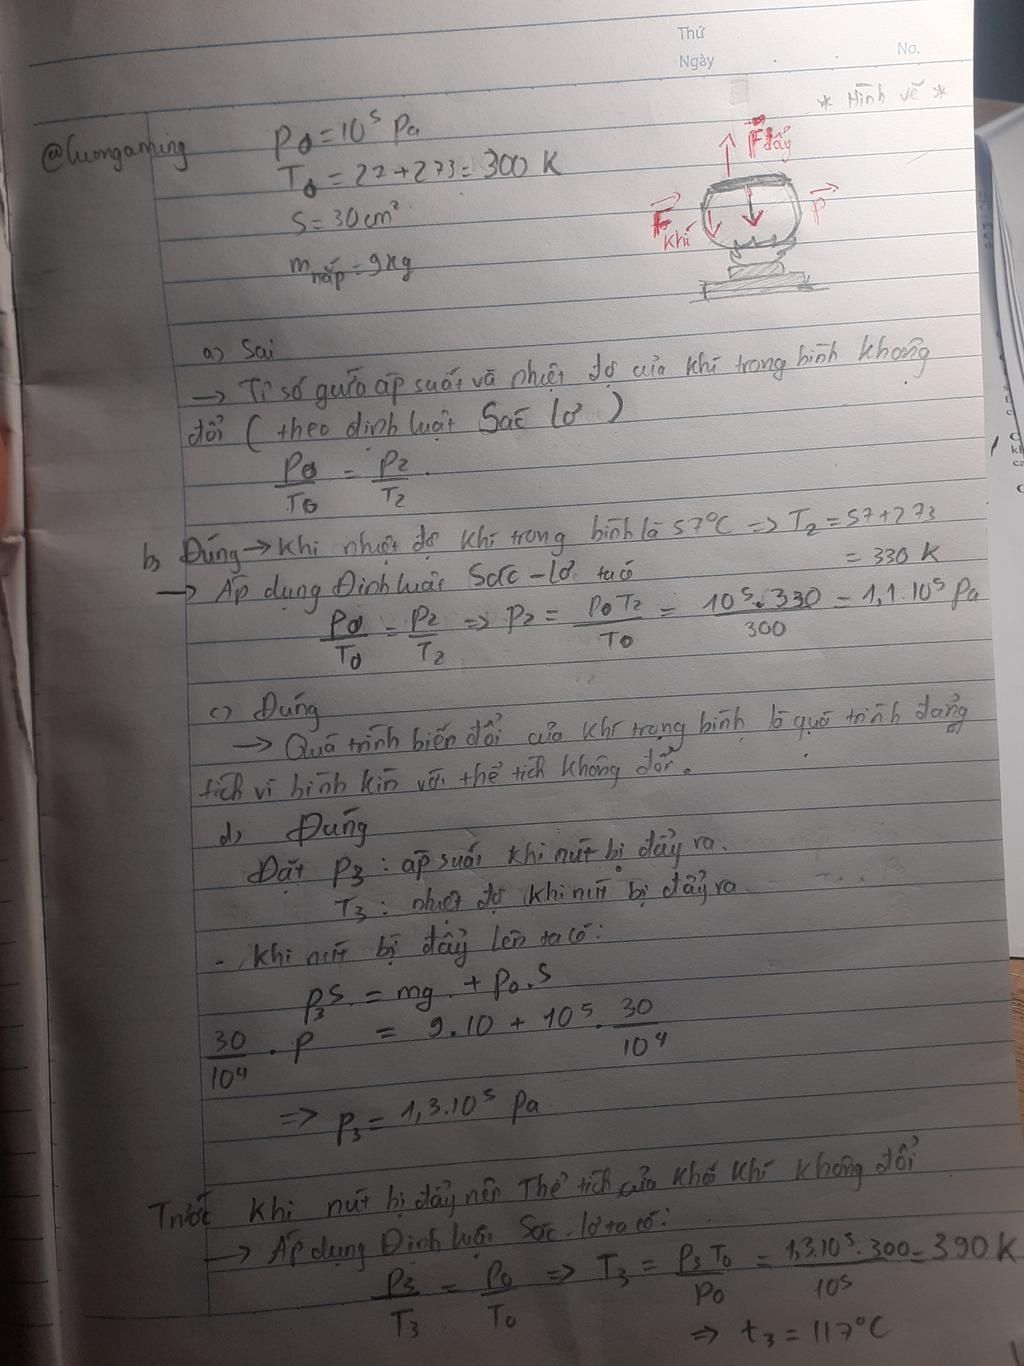 Thứ
Ngày
No.
* Hình vẽ *
@luonganhing
P0 = 10⁵ Pa
T0 = 27+273 = 300 K
S = 30 cm²
m nắp = 9kg
F đẩy
F khí
P
a) Sai
→ Tỉ số giữa áp suất và nhiệt độ của khí trong bình không
đổi ( theo định luật Sác lơ )
P0/T0 = P2/T2 .
b) Đúng → Khi nhiệt độ khí trong bình là 57°C => T2 = 57+273
= 330 K
→ Áp dụng Định luật Sác-lơ ta có
P0/T0 = P2/T2 => P2 = P0T2/T0 = 10⁵.330/300 = 1,1.10⁵ Pa
c) Đúng
→ Quá trình biến đổi của khí trong bình là quá trình đẳng
tích vì bình kín với thể tích không đổi.
d) Đúng
Đặt P3 : áp suất khi nút bị đẩy ra.
T3 : nhiệt độ khi nút bị đẩy ra
- Khi nút bị đẩy lên ta có:
P3S = mg + P0.S
30/10⁴ . P = 9.10 + 10⁵ . 30/10⁴
=> P3 = 1,3.10⁵ Pa
Trước khi nút bị đẩy nên Thể tích của khối khí không đổi
→ Áp dụng Định luật Sác-lơ ta có:
P3/T3 = P0/T0 => T3 = P3T0/P0 = 1,3.10⁵.300/10⁵ = 390 K
=> t3 = 117°C